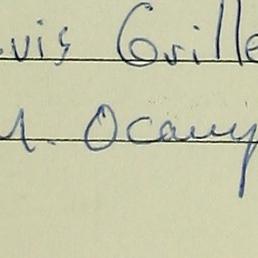 vis Grille
M. Ocamp